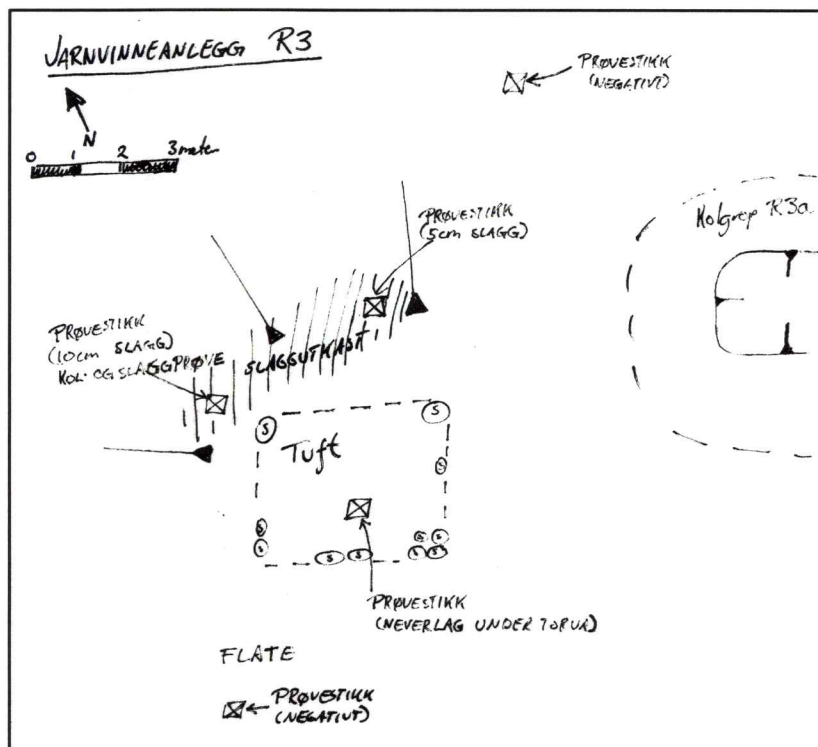 JARNVINNEANLEGG R3
N
0 1 2 3 meter
PRØVESTIKK
(NEGATIVT)
Kolgrop R3a
PRØVESTIKK
(5cm SLAGG)
PRØVESTIKK
(10cm SLAGG)
KOL- OG SLAGGPRØVE
SLAGGUTKAST
S
S
Tuft
S
S
S
S
S
S
S
S
S
PRØVESTIKK
(NEVERLAG UNDER TORVA)
FLATE
PRØVESTIKK
(NEGATIVT)